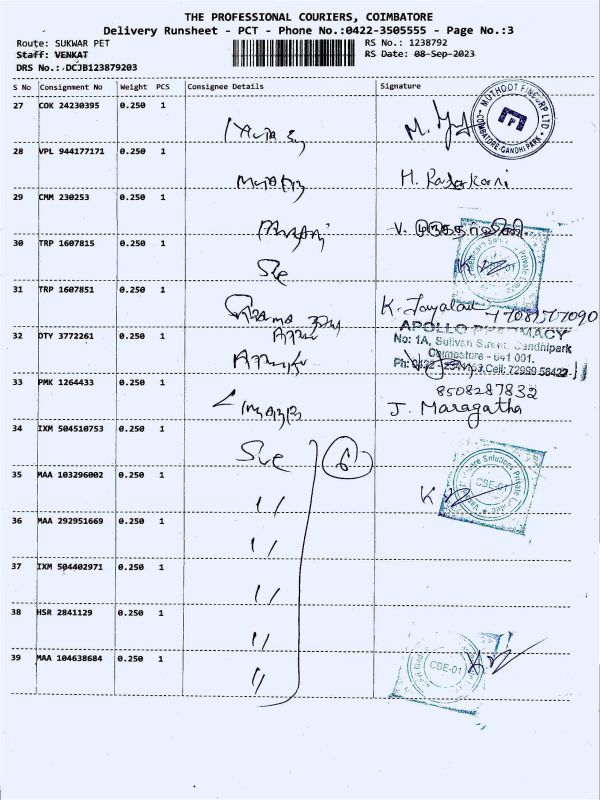 THE PROFESSIONAL COURIERS, COIMBATORE
Delivery Runsheet - PCT - Phone No.:0422-3505555 - Page No.:3
Route: SUKWAR PET RS No.: 1238792
Staff: VENKAT RS Date: 08-Sep-2023
DRS No.: DCJB123879203
S No Consignment No Weight PCS Consignee Details Signature
27 COK 24230395 0.250 1
MUTHOOT FINCORP LTD.
COIMBATORE-GANDHI PARK
28 VPL 944177171 0.250 1
29 CMM 230253 0.250 1
30 TRP 1607815 0.250 1
Sve
31 TRP 1607851 0.250 1
K. Jayalal
APOLLO PHARMACY
32 DTY 3772261 0.250 1
No: 1A, Sullivan Street, Gandhipark
Coimbatore - 641 001.
Cell: 72999 58422
33 PMK 1264433 0.250 1
8508287832
J. Maragatha
34 IXM 504510753 0.250 1
Sve 6
35 MAA 103296002 0.250 1
CBE-01
〃
36 MAA 292951669 0.250 1
〃
37 IXM 504402971 0.250 1
〃
38 HSR 2841129 0.250 1
〃
39 MAA 104638684 0.250 1
CBE-01
〃